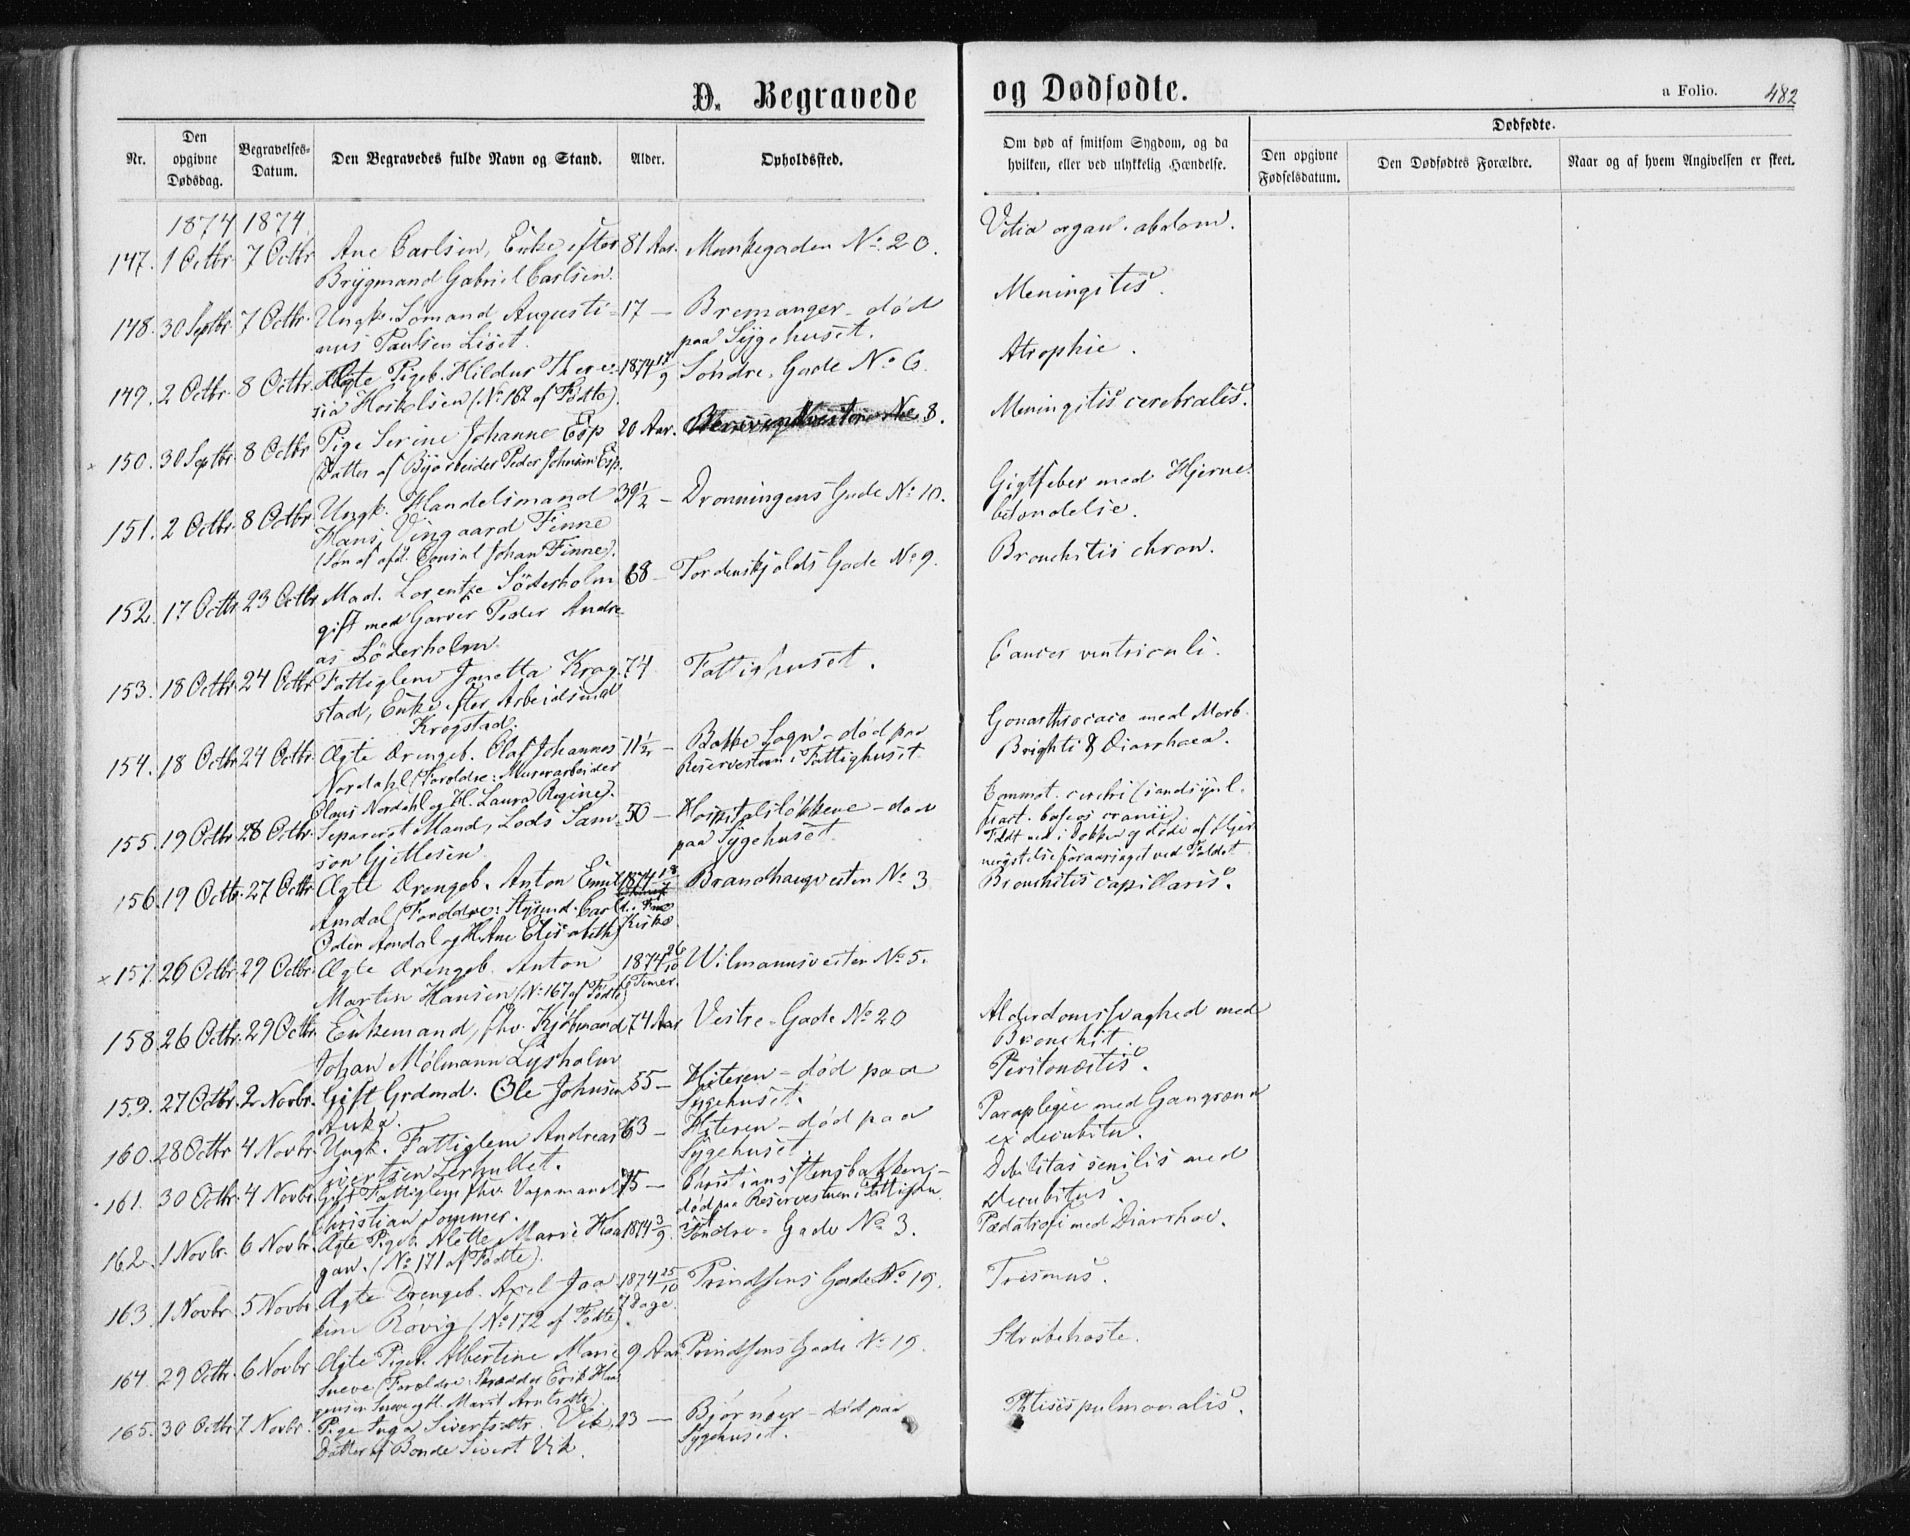 D. Begravede
og Dødfødte.
a Folio. 482
Nr.
Den opgivne Dødsdag.
Begravelses-Datum.
Den Begravedes fulde Navn og Stand.
Alder.
Opholdssted.
Om død af smitsom Sygdom, og da hvilken, eller ved ulykkelig Hændelse.
Dødfødte.
Den opgivne Fødselsdatum.
Den Dødfødtes Forældre.
Naar og af hvem Angivelsen er skeet.
1874 1874
147. 1 Octbr. 7 Octbr. Ane Carlsen, Enke efter 81 Aar. Munkegaden No. 20. Vitia organ. abdom.
Brygmand Gabriel Carlsen.
148. 30 Septbr. 7 Octbr. Ungk. Sömand Augusti- 17 — Bremanger - död Meningitis.
nus Paulsen Liset. paa Sygehuset.
149. 2 Octbr. 8 Octbr. Ægte Pigeb. Hildur There- 1874 17/9 Söndre-Gade No 6. Atrophie.
sia Hoskelsen (No. 162 af Födte).
150. 30 Septbr. 8 Octbr. Pige Serine Johanne Esp 20 Aar. 8. Meningitis cerebralis.
(Datter af Byarbeider Peder Johnsen Esp.
151. 2 Octbr. 8 Octbr. Ungk. Handelsmand 39 1/2 — Dronningens Gade No 10. Gigtfeber med Hjerne-
Hans Vingaard Finne betændelse.
(Sön af afd. Consul Johan Finne).
152. 17 Octbr. 23 Octbr. Mad. Lorentze Söderholm 68 — Tordenskjolds Gade No 9. Bronchitis chron.
gift med Garver Peder Andre-
as Söderholm.
153. 18 Octbr. 24 Octbr. Fattiglem Jonetta Krog- 74 Fattighuset. Cancer ventriculi.
stad, Enke efter Arbeidsmd
Krogstad.
154. 18 Octbr. 24 Octbr. Ægte Drengeb. Olaf Johannes 11 1/2 — Bakke Sogn - död paa Gonarthrocace med Morb.
Nordahl (Forældre: Murerarbeider Reservestuen i Fattighuset. Brighti & Diarrhoea.
Claus Nordahl og H. Laura Regine).
155. 19 Octbr. 28 Octbr. Separeret Mand, Lods Sam- 50 — Hospitalslökkene - död Commot. cerebri
son Gjetlesen paa Sygehuset. fract. baseos cranii
156. 19 Octbr. 27 Octbr. Ægte Drengeb. Anton Emil 1874 Brandhaugveiten No. 3 Bronchitis capillaris.
Amdal (Forældre: Carl
Odin Amdal og H. Ane Elisabeth) Kirke
157. 26 Octbr. 29 Octbr. Ægte Drengeb. Anton 1874 26/10 Wilmannsveiten No 5.
Martin Hansen (No. 167 af Födte) 6 Timer.
158. 26 Octbr. 29 Octbr. Enkemand, fhv. Kjöbmand 74 Aar Vestre-Gade No 20 Alderdomssvaghed med
Johan Mölmann Lysholm Bronchit.
159. 27 Octbr. 2 Novbr. Gift Grdmd. Ole Johnsen 55 — Hiteren - död paa Peritonæitis.
Auka. Sygehuset.
160. 28 Octbr. 4 Novbr. Ungk. Fattiglem Andreas 63 — Hiteren - död paa Paraplegie med Gangræna
Sivertsen Sygehuset. ex decubitu.
161. 30 Octbr. 4 Novbr. Gift Fattiglem fhv. Vognmand 75 — Christianstensbakken - Debilitas senilis med
Christian Sommer. död paa Reservestuen i Fattighu- Decubitus.
162. 1 Novbr. 6 Novbr. Ægte Pigeb. Alette Marie Haa- 1874 3/9 Söndre-Gade No. 3. Pædatrofi med Diarrhoe.
gen. (No 171 af Födte).
163. 1 Novbr. 5 Novbr. Ægte Drengeb. Axel Joa- 1874 25/10 Prindsens Gade No 19. Trismus.
kim Rövig (No 172 af Födte). 7 Dage.
164. 29 Octbr. 6 Novbr. Ægte Pigeb. Albertine Marie 9 Aar Prindsens Gade No 19. Strubehoste.
Sneve (Forældre: Skrædder Erik
Sneve og H. Marit Arntsdtr.)
165. 30 Octbr. 7 Novbr. Pige Inga Sivertsdtr. Vik, 23 — Björnöer - död paa Phtisis pulmonalis.
Datter af Bonde Sivert Vik. Sygehuset.